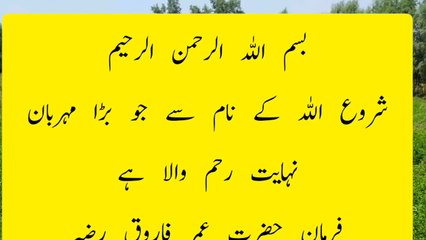 بسم اللہ الرحمن الرحیم
شروع اللہ کے نام سے جو بڑا مہربان
نہایت رحم والا ہے
فرمان حضرت عمر فاروق رضی